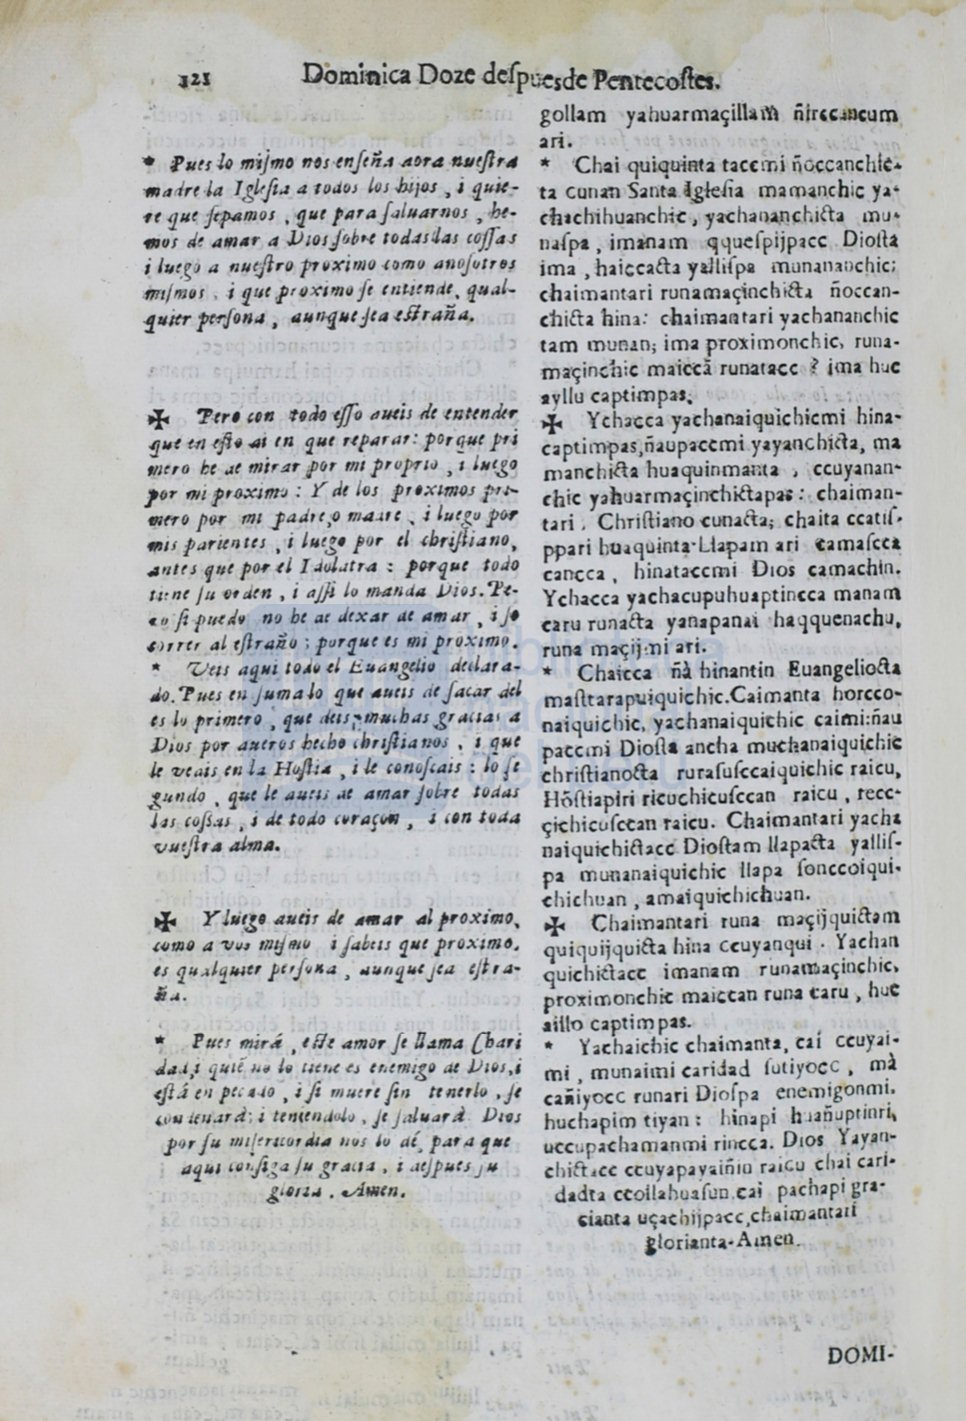 121 Dominica Doze despues de Pentecostes.
* Pues lo mismo nos enseña aora nuestra
madre la Iglesia a todos los hijos, i quie-
re que sepamos, que para saluarnos, he-
mos de amar a Dios sobre todas las cossas
i luego a nuestro proximo como anosotros
mismos, i que proximo se entiende, qual-
quier persona, aunque sea estraña.
✠ Pero con todo esso aueis de entender
que en esto ai en que reparar: porque pri
mero he de mirar por mi proprio, i luego
por mi proximo: Y de los proximos pri-
mero por mi padre, o madre, i luego por
mis parientes, i luego por el christiano,
antes que por el Idolatra: porque todo
tiene su orden, i assi lo manda Dios. Pe-
ro si puedo no he de dexar de amar, i so
correr al estraño; porque es mi proximo.
* Veis aqui todo el Euangelio declara-
do. Pues en suma lo que aueis de sacar del
es lo primero, que deis muchas gracias a
Dios por aueros hecho christianos, i que
le veais en la Hostia, i le conoscais: lo se
gundo, que le aueis de amar sobre todas
las cossas, i de todo coraçon, i con toda
vuestra alma.
✠ Y luego aueis de amar al proximo,
como a vos mismo i sabeis que proximo,
es qualquier persona, aunque sea estra-
ña.
* Pues mirá, este amor se llama Chari
dad, i quiē no lo tiene es enemigo de Dios, i
está en pecado, i si muere sin tenerlo, se
condenará; i teniendolo, se saluará. Dios
por su misericordia nos lo dé, para que
aqui consiga su gracia, i despues su
gloria. Amen.
gollam yahuarmaçillam ñirccancum
ari.
* Chai quiquinta taccmi ñoccanchic-
ta cunan Santa Iglesia mamanchic ya-
chachihuanchic, yachananchicta mu-
naspa, imanam qquespijpacc Diosta
ima, haiccacta yallispa munananchic;
chaimantari runamaçinchicta ñoccan-
chicta hina: chaimantari yachananchic
tam munan; ima proximonchic, runa-
maçinchic maiccā runatacc? ima huc
ayllu captimpas.
✠ Ychacca yachanaiquichicmi hina-
captimpas, ñaupaccmi yayanchicta, ma
manchicta huaquinmanta, ccuyanan-
chic yahuarmaçinchictapas: chaiman-
tari, Christiano cunacta; chaita ccatis-
ppari huaquinta. Llapam ari camascca
cancca, hinataccmi Dios camachin.
Ychacca yachacupuhuaptincca manam
caru runacta yanapanai haqquenachu,
runa maçijmi ari.
* Chaicca ñà hinantin Euangeliocta
mastarapuiquichic. Caimanta horcco-
naiquichic, yachanaiquichic caimi: ñau
paccmi Diosta ancha muchanaiquichic
christianocta rurasusccaiquichic raicu,
Hōstiapiri ricuchicusccan raicu, recc-
çichicusccan raicu. Chaimantari yacha
naiquichictacc Diostam llapacta yallis-
pa munanaiquichic llapa sonccoiqui-
chichuan, amaiquichichuan.
✠ Chaimantari runa maçijquictam
quiquijquicta hina ccuyanqui. Yachan
quichictacc imanam runamaçinchic,
proximonchic maiccan runa caru, huc
aillo captimpas.
* Yachaichic chaimanta, cai ccuyai-
mi, munaimi caridad sutiyocc, mà
cañiyocc runari Diospa enemigonmi,
huchapim tiyan: hinapi huañuptinri,
uccupachamanmi rincca. Dios Yayan-
chictacc ccuyapayaiñin raicu chai cari-
dadta ccollahuasun cai pachapi gra-
cianta uçachijpacc, chaimantari
glorianta. Amen.
DOMI-